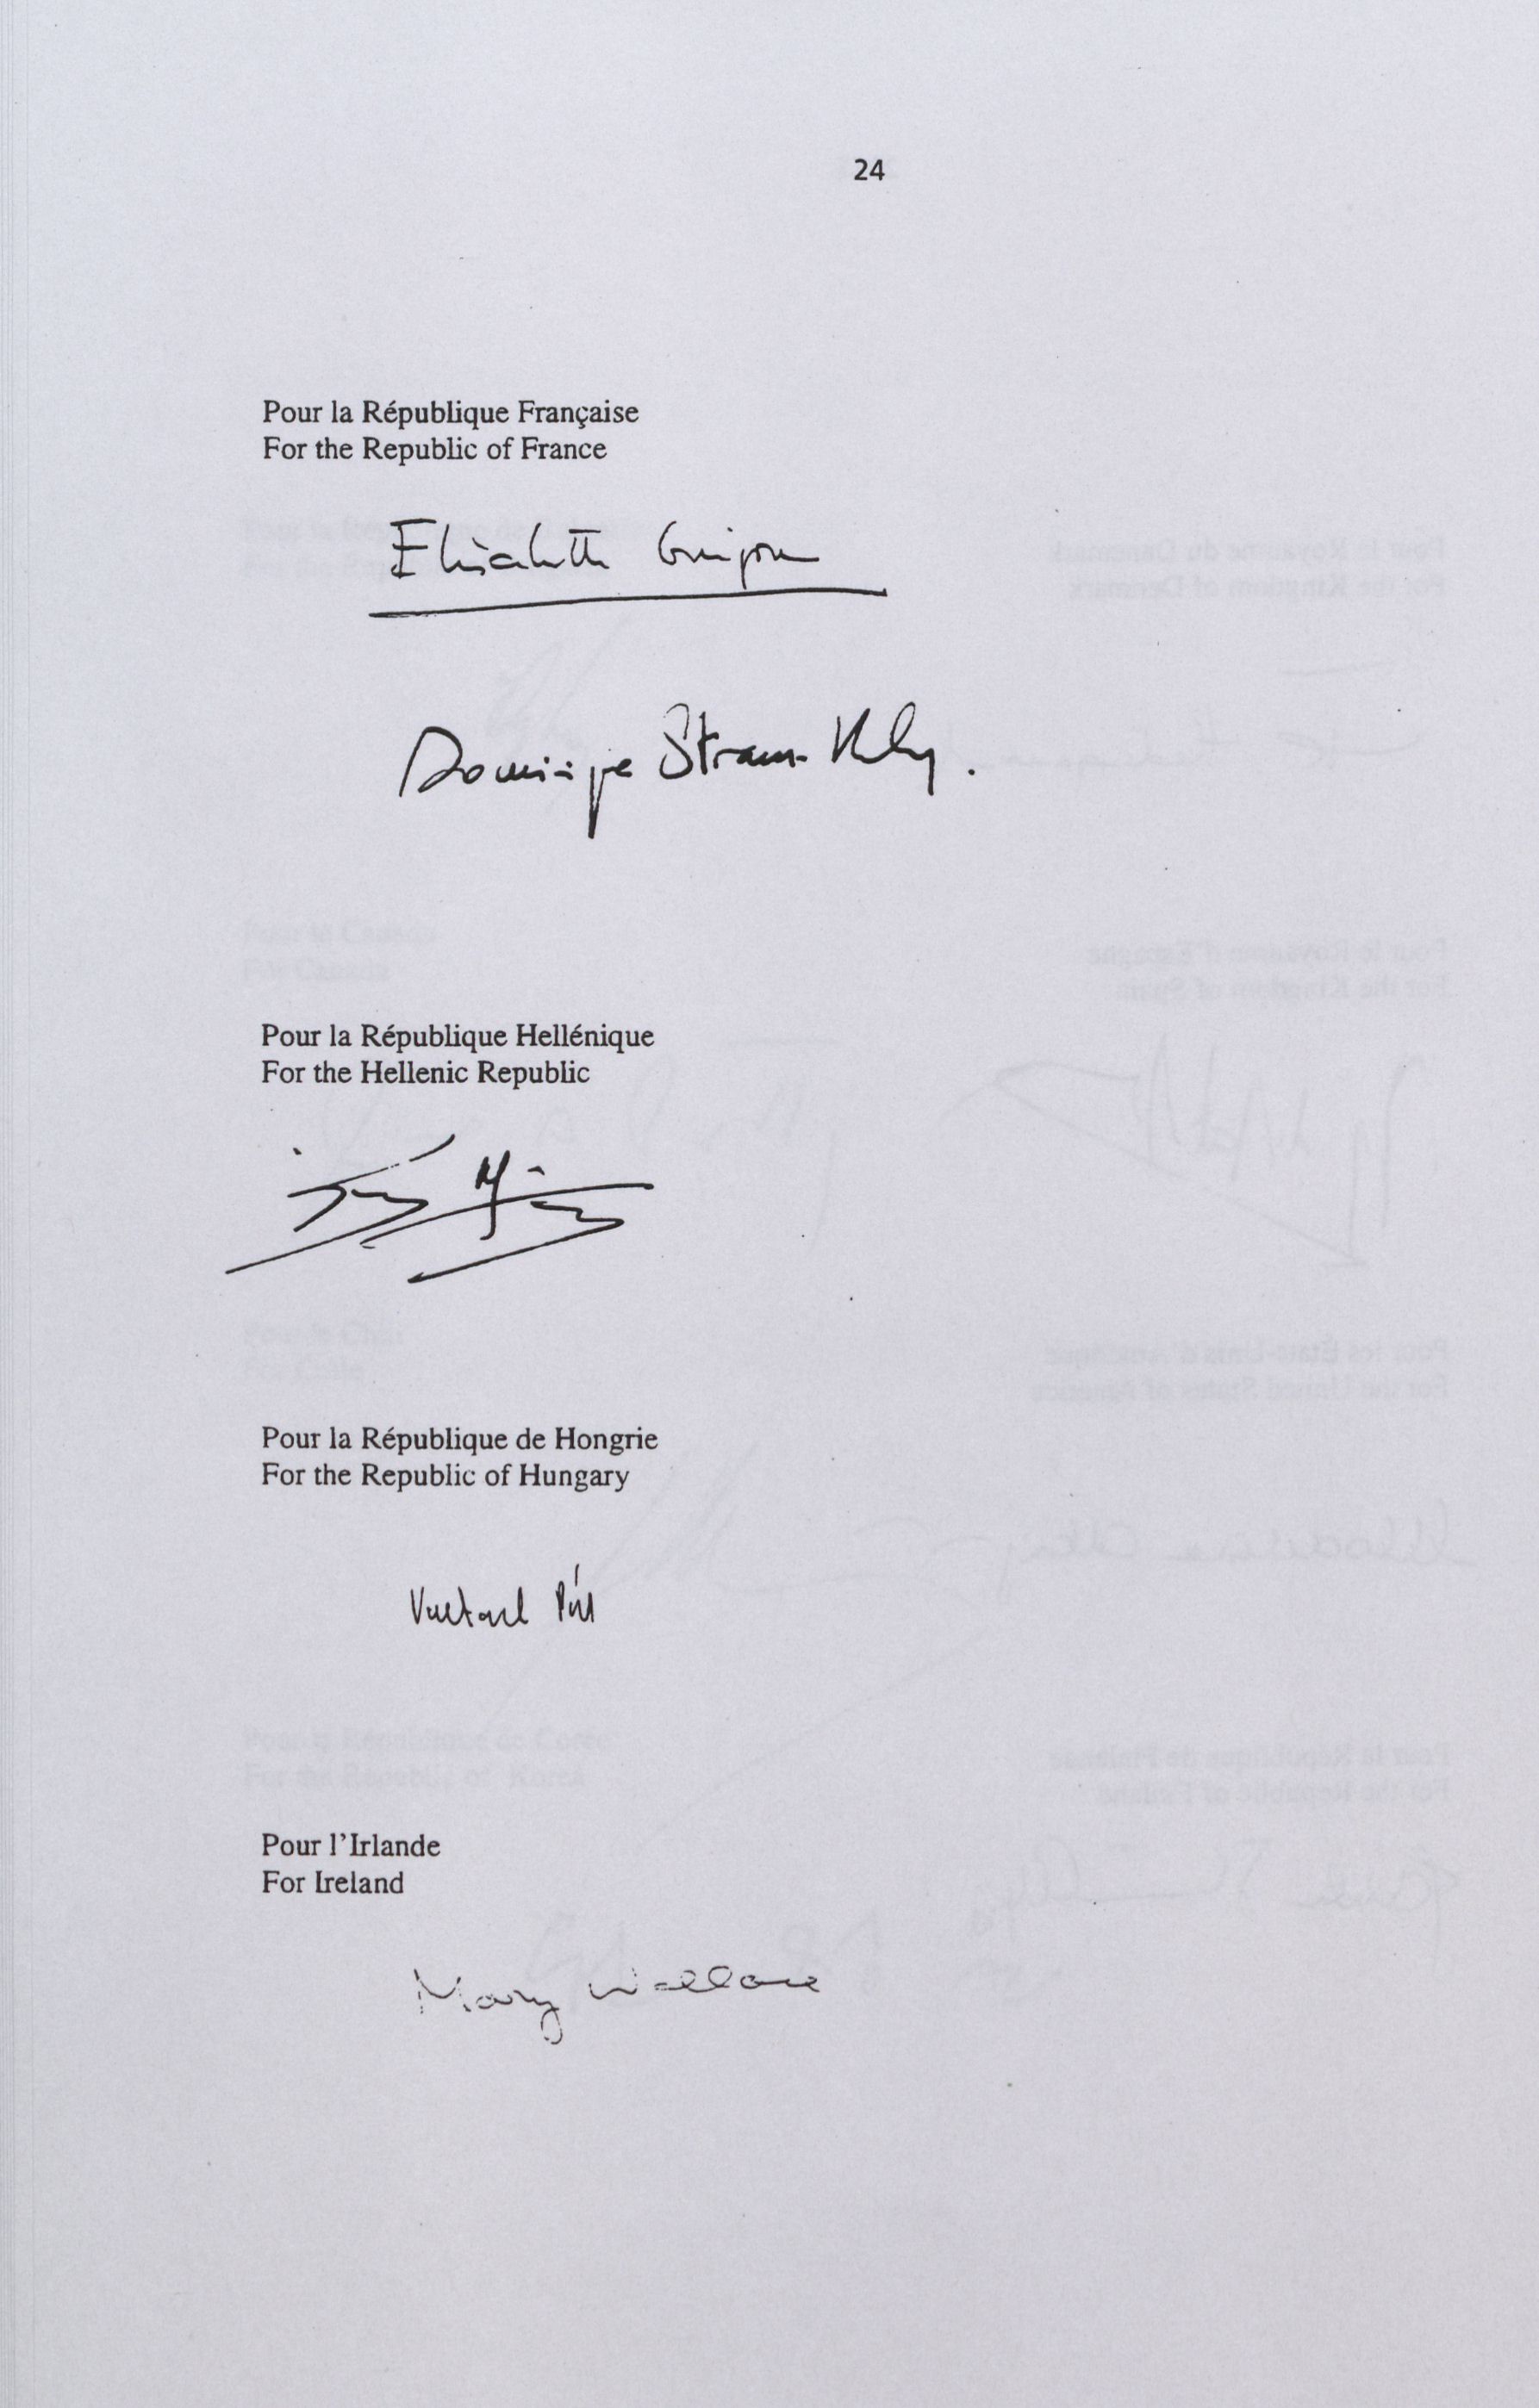 24
Pour la République Française
For the Republic of France
Elisabeth Guigou
Dominique Strauss-Kahn.
Pour la République Hellénique
For the Hellenic Republic
Pour la République de Hongrie
For the Republic of Hungary
Pál
Pour l'Irlande
For Ireland
Mary Wallace